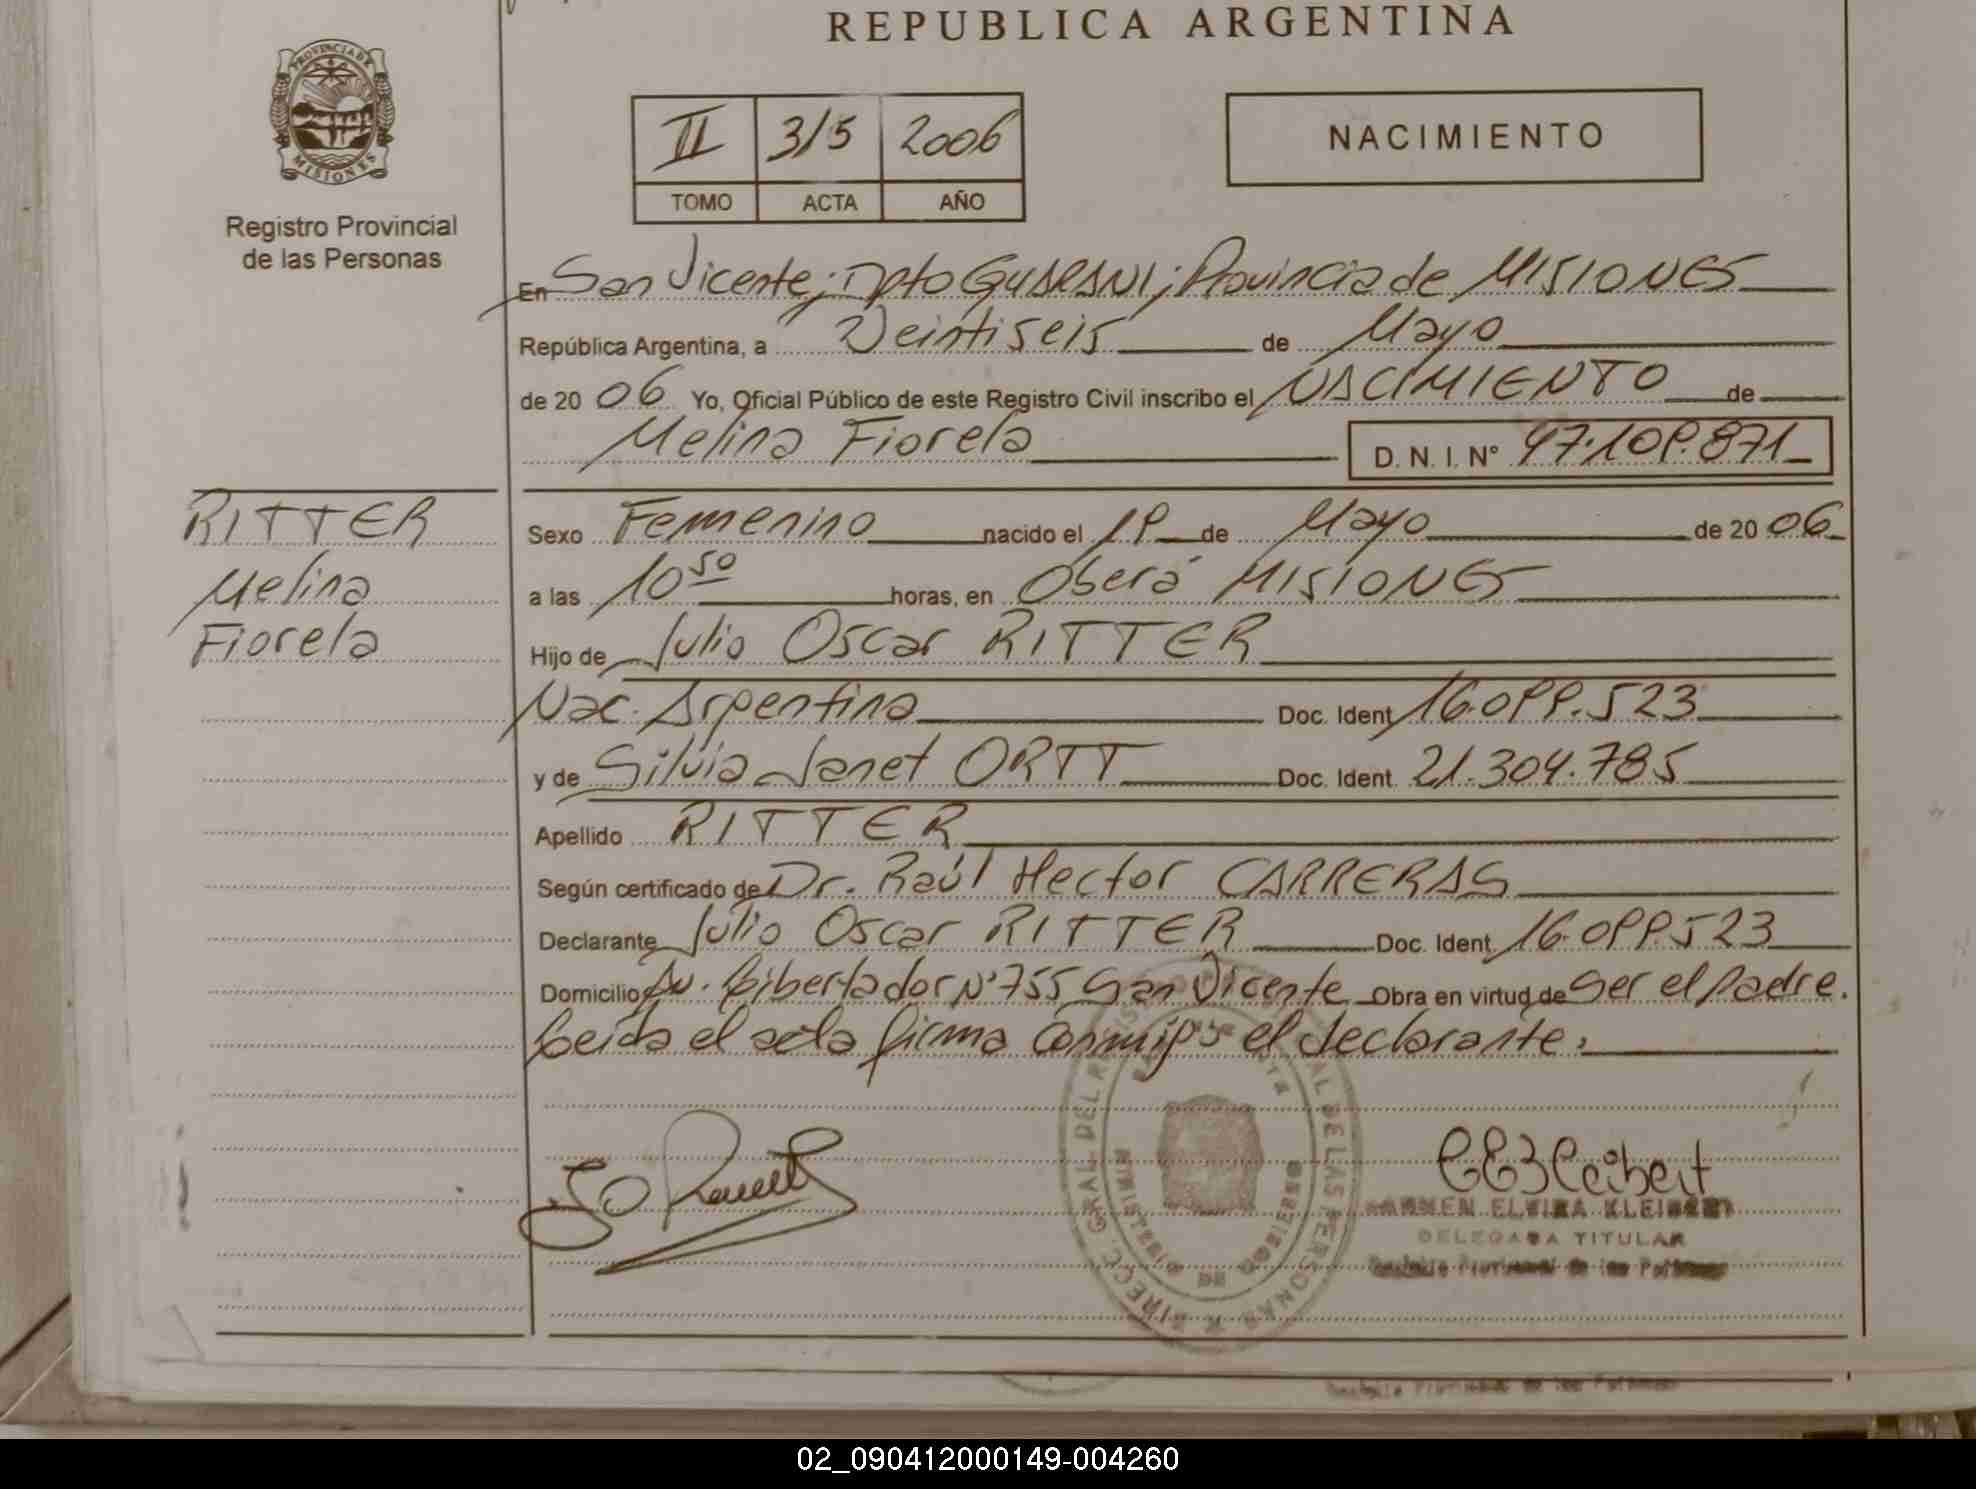 REPUBLICA ARGENTINA
PROVINCIA DE
MISIONES
Registro Provincial
de las Personas
II 315 2006
TOMO ACTA AÑO
NACIMIENTO
En San Vicente; Dpto GUARANI; Provincia de MISIONES
República Argentina, a Veintiseis de Mayo
de 2006 Yo, Oficial Público de este Registro Civil inscribo el NACIMIENTO de
Melina Fiorela D. N. I. N° 47.109.871
RITTER
Melina
Fiorela
Sexo Femenino nacido el 19 de Mayo de 2006
a las 10 50 horas, en Oberá MISIONES
Hijo de Julio Oscar RITTER
Nac. Argentina Doc. Ident. 16.099.523
y de Silvia Janet ORTT Doc. Ident. 21.304.785
Apellido RITTER
Según certificado de Dr. Raúl Hector CARRERAS
Declarante Julio Oscar RITTER Doc. Ident. 16.099.523
Domicilio Av. Libertador N° 755 San Vicente Obra en virtud de Ser el Padre.
Leida el acta firma conmigo el declarante.
DIRECC. GRAL. DEL REGISTRO PROVINCIAL DE LAS PERSONAS
MINISTERIO DE GOBIERNO
CARMEN ELVIRA KLEIBERT
DELEGADA TITULAR
Registro Provincial de las Personas
Registro Provincial de las Personas
02_090412000149-004260